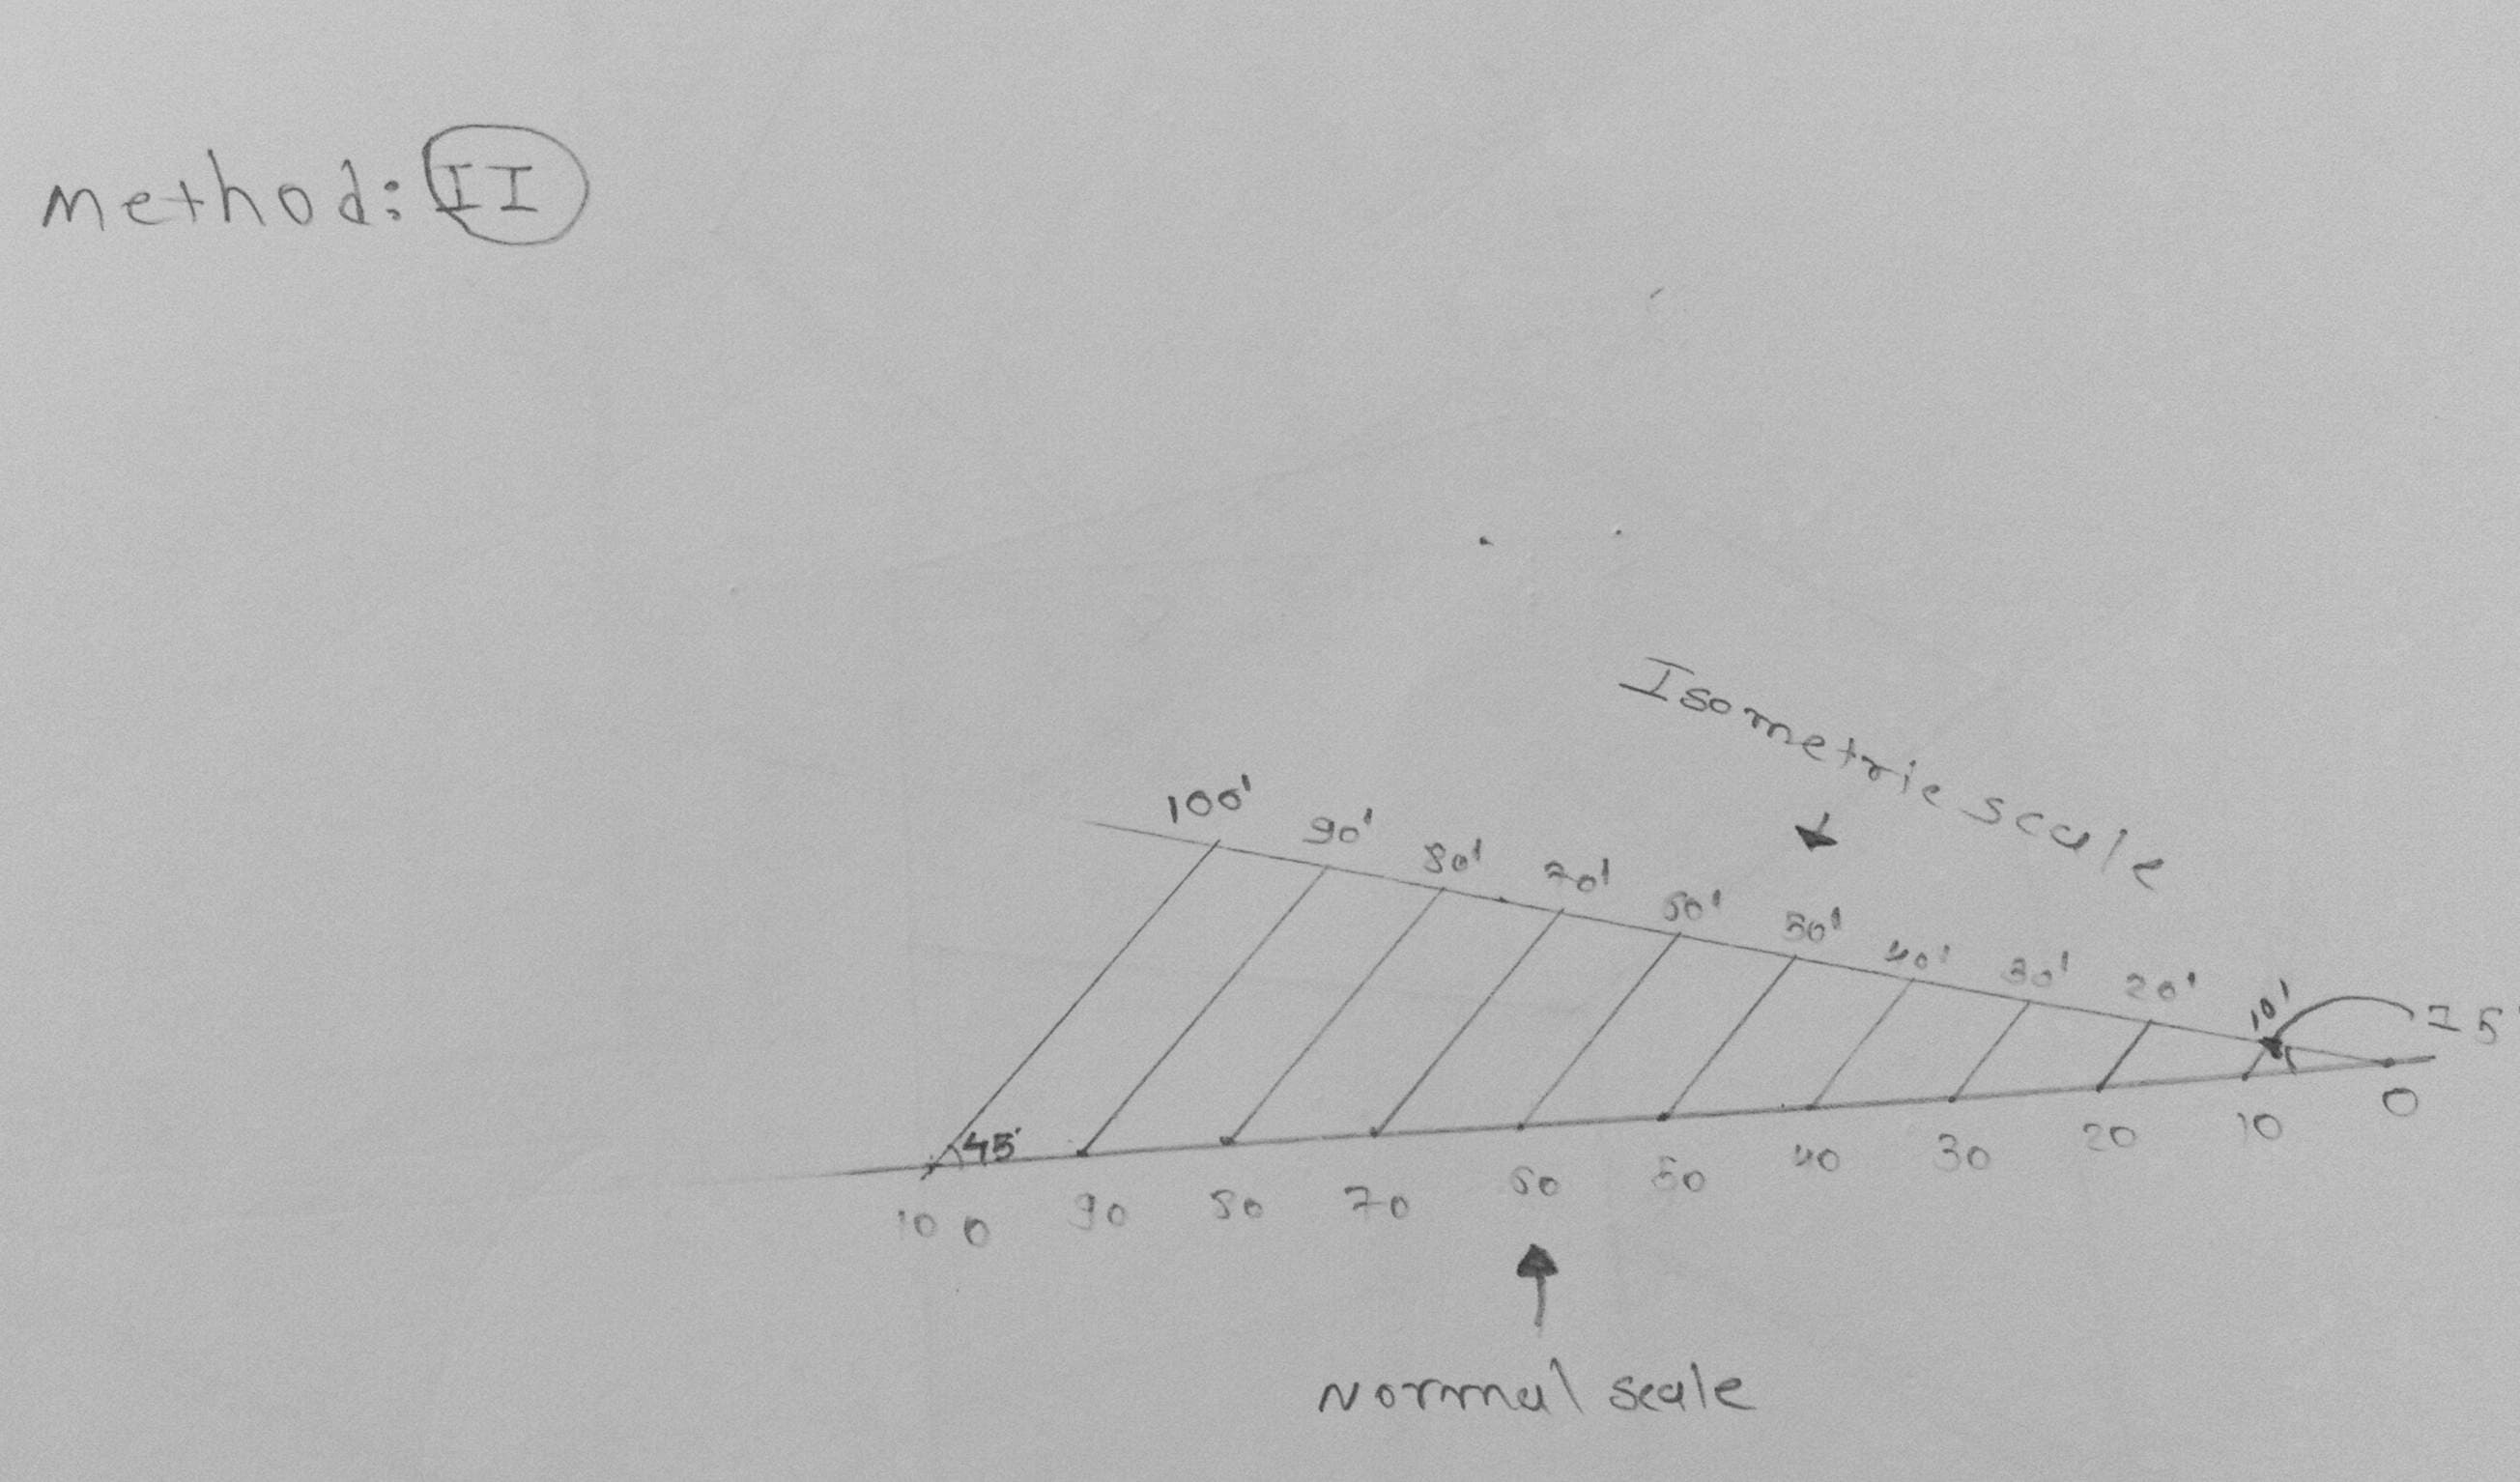 Method: II
Isometric scale
100' 90' 80' 70' 60' 50' 40' 30' 20' 10'
15
45°
100 90 80 70 60 50 40 30 20 10 0
Normal scale